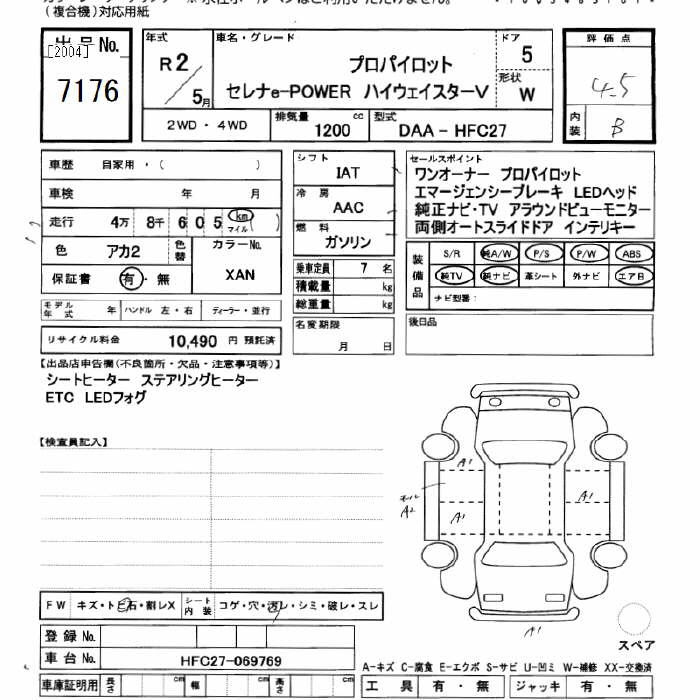 （複合機）対応用紙
出品No.
[2004]
7176
年式
R2
5月
車名・グレード
プロパイロット
セレナe-POWER ハイウェイスターV
ドア
5
形状
W
評価点
4.5
内装
B
2WD・4WD
排気量
1200 cc
型式
DAA-HFC27
車歴 自家用・（ ）
車検 年 月
走行 4万 8千 6 0 5 km マイル
色 アカ2 色替 カラーNo.
XAN
保証書 有・無
モデル年式 年 ハンドル 左・右 ディーラー・並行
リサイクル料金 10,490 円 預託済
シフト
IAT
冷房
AAC
燃料
ガソリン
乗車定員 7 名
積載量 kg
総重量 kg
名変期限
月 日
セールスポイント
ワンオーナー プロパイロット
エマージェンシーブレーキ LEDヘッド
純正ナビ・TV アラウンドビューモニター
両側オートスライドドア インテリキー
装備品
S/R 純A/W P/S P/W ABS
純TV 純ナビ 革シート 外ナビ エアB
ナビ型番：
後日品
【出品店申告欄（不良箇所・欠品・注意事項等）】
シートヒーター ステアリングヒーター
ETC LEDフォグ
【検査員記入】
A1
A2
A1
A1
A1
FW キズ・トビ石・割レX シート内装 コゲ・穴・汚レ・シミ・破レ・スレ
スペア
登録No.
車台No. HFC27-069769
A-キズ C-腐食 E-エクボ S-サビ U-凹ミ W-補修 XX-交換済
車庫証明用 長さ cm 幅 cm 高さ cm
工具 有・無 ジャッキ 有・無